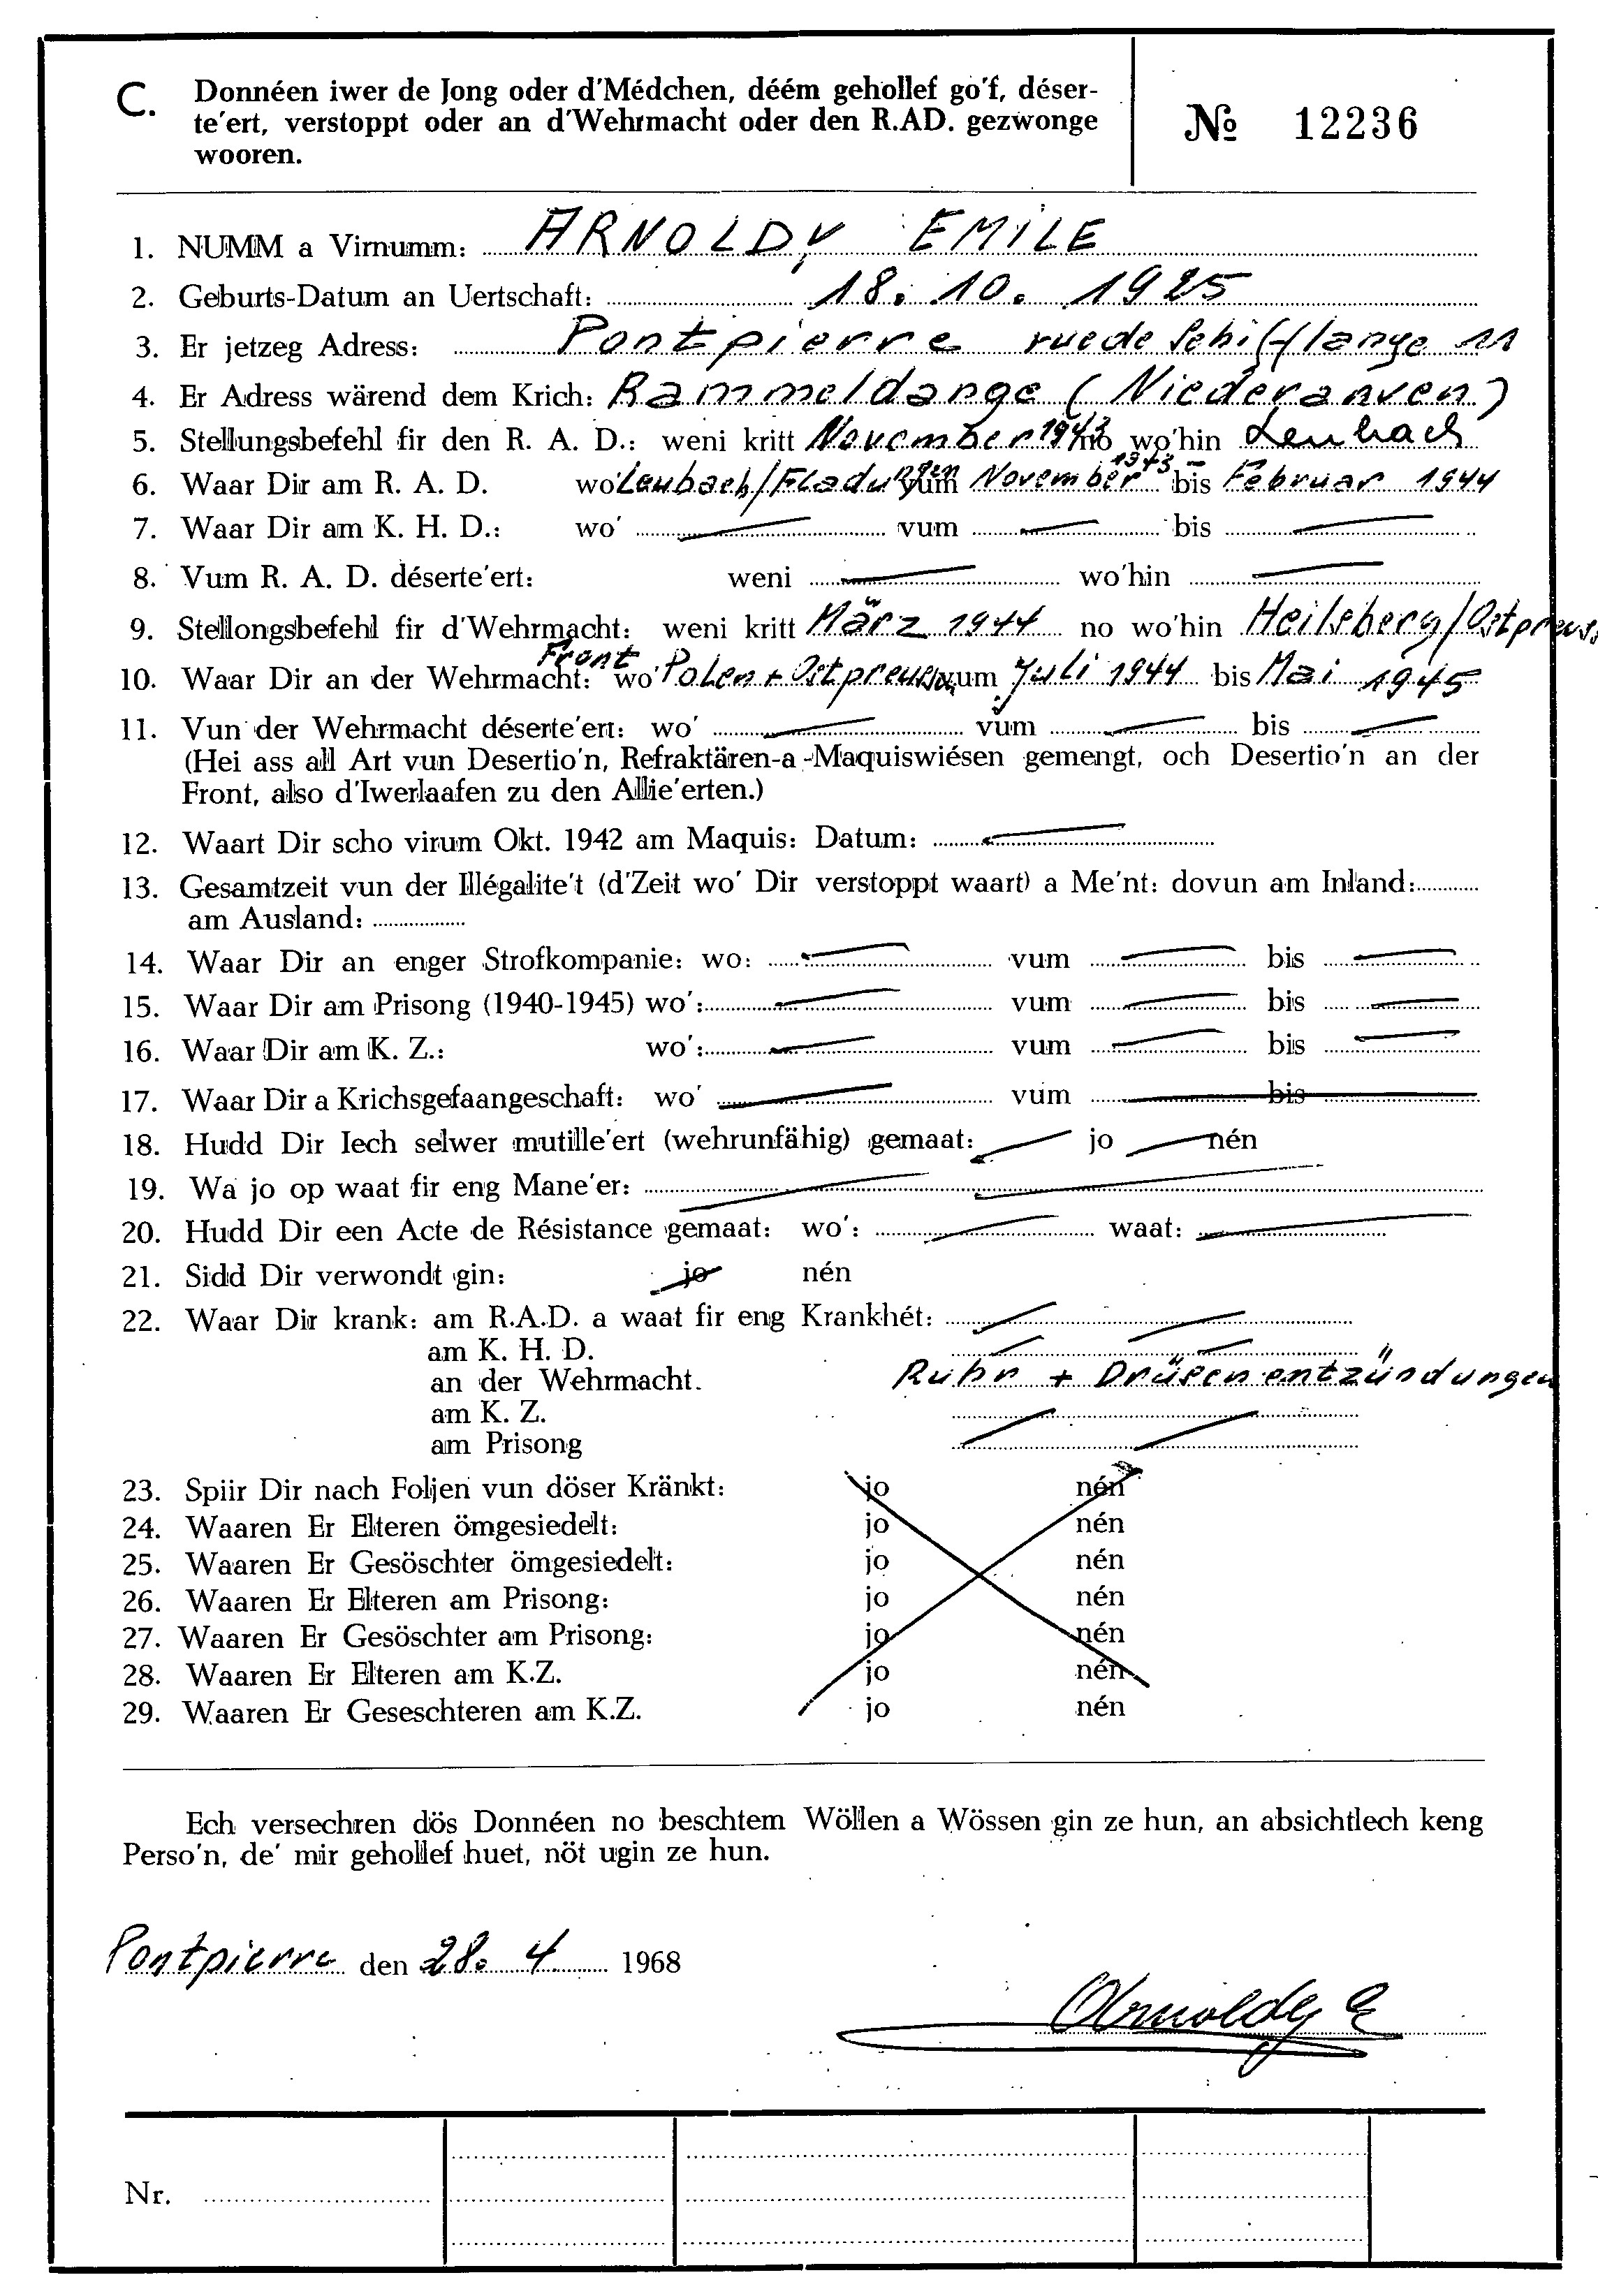 C. Donnéen iwer de Jong oder d'Médchen, déém gehollef go'f, déser-
te'ert, verstoppt oder an d'Wehrmacht oder den R.AD. gezwonge
wooren.
№ 12236
1. NUMM a Virnumm: ARNOLDY EMILE
2. Geburts-Datum an Uertschaft: 18. 10. 1925
3. Er jetzeg Adress: Pontpierre rue de Schifflange 11
4. Er Adress wärend dem Krich: Rammeldange (Niederanven)
5. Stellungsbefehl fir den R. A. D.: weni kritt November 1943 no wo'hin Leubach
6. Waar Dir am R. A. D. wo' Leubach/Fladungen vum November 1943 bis Februar 1944
7. Waar Dir am K. H. D.: wo' — vum — bis —
8. Vum R. A. D. déserte'ert: weni — wo'hin —
9. Stellongsbefehl fir d'Wehrmacht: weni kritt März 1944 no wo'hin Heilsberg/Ostpreuss
10. Waar Dir an der Wehrmacht: wo' Front Polen + Ostpreussen vum Juli 1944 bis Mai 1945
11. Vun der Wehrmacht déserte'ert: wo' — vum — bis —
(Hei ass all Art vun Desertio'n, Refraktären-a-Maquiswiésen gemengt, och Desertio'n an der
Front, also d'Iwerlaafen zu den Allie'erten.)
12. Waart Dir scho virum Okt. 1942 am Maquis: Datum: —
13. Gesamtzeit vun der Illégalite't (d'Zeit wo' Dir verstoppt waart) a Me'nt: dovun am Inland:
am Ausland:
14. Waar Dir an enger Strofkompanie: wo: — vum — bis —
15. Waar Dir am Prisong (1940-1945) wo': — vum — bis —
16. Waar Dir am K. Z.: wo': — vum — bis —
17. Waar Dir a Krichsgefaangeschaft: wo' — vum — bis —
18. Hudd Dir Iech selwer mutille'ert (wehrunfähig) gemaat: — jo — nén
19. Wa jo op waat fir eng Mane'er: — —
20. Hudd Dir een Acte de Résistance gemaat: wo': — waat: —
21. Sidd Dir verwondt gin: jo nén
22. Waar Dir krank: am R.A.D. a waat fir eng Krankhét: — —
am K. H. D. — —
an der Wehrmacht. Ruhr + Drüsenentzündungen
am K. Z.
am Prisong — —
23. Spiir Dir nach Foljen vun döser Kränkt: jo nén
24. Waaren Er Elteren ömgesiedelt: jo nén
25. Waaren Er Gesöschter ömgesiedelt: jo nén
26. Waaren Er Elteren am Prisong: jo nén
27. Waaren Er Gesöschter am Prisong: jo nén
28. Waaren Er Elteren am K.Z. jo nén
29. Waaren Er Geseschteren am K.Z. jo nén
Ech versechren dös Donnéen no beschtem Wöllen a Wössen gin ze hun, an absichtlech keng
Perso'n, de' mir gehollef huet, nöt ugin ze hun.
Pontpierre den 28. 4 1968
Arnoldy E
Nr.